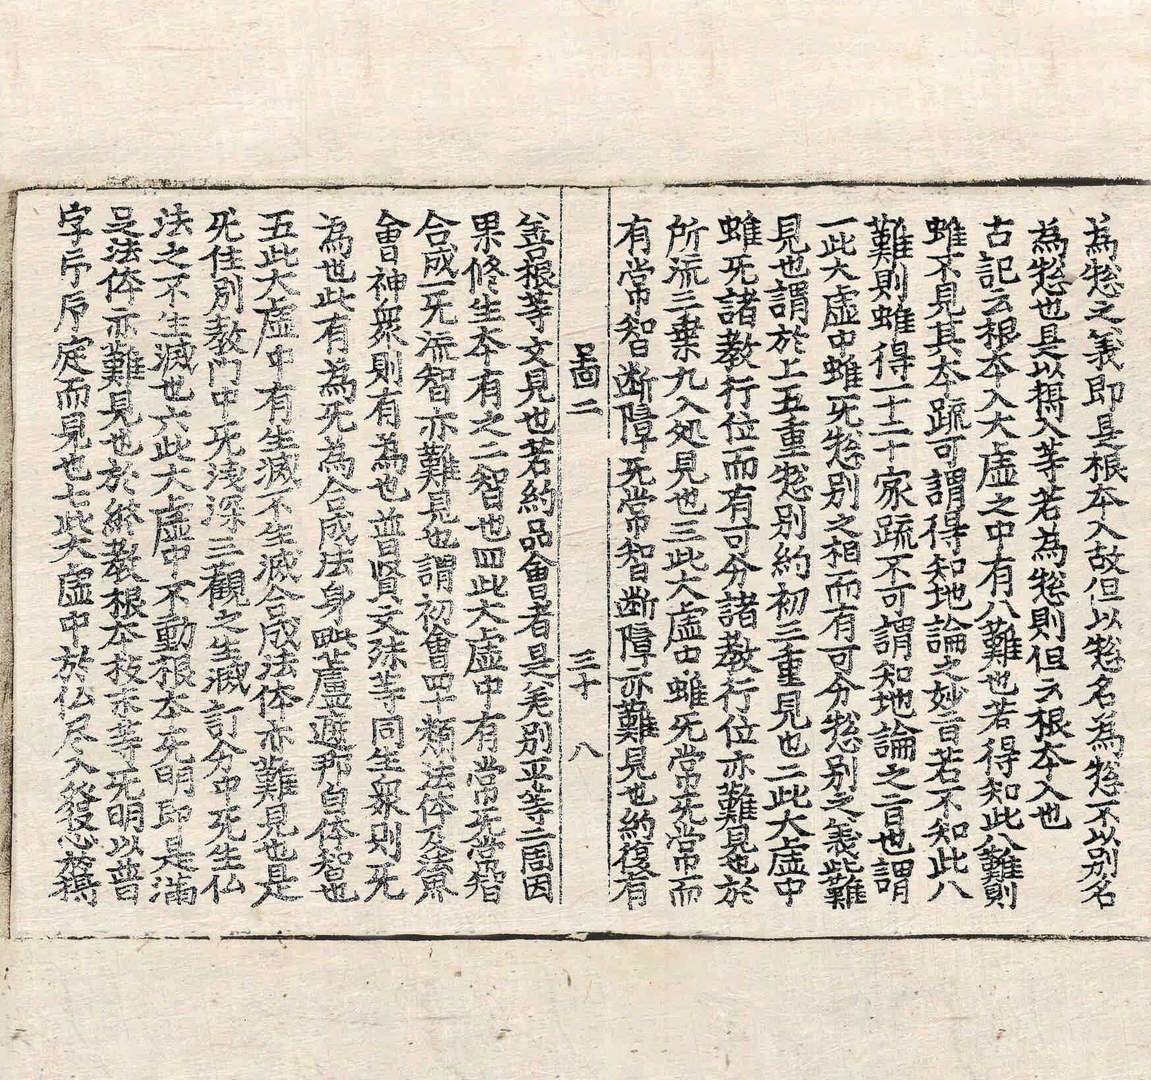 為惣之義即是根本入故但以惣名為惣不以別名
為惣也是以揔入等若為惣則但云根本入也
古記云根本入大虛之中有八難也若得知此八難則
雖不見其本疏可謂得知地論之妙旨若不知此八
難則雖得一十二十家疏不可謂知地論之旨也謂
一此大虛中雖旡惣別之相而有可分惣別之義此難
見也謂於上五重惣別約初三重見也二此大虛中
雖旡諸教行位而有可分諸教行位亦難見也於
所流三乗九入処見也三此大虛中雖旡常旡常而
有常智断障旡常智断障亦難見也約復有
㫖圖二 三十八
善根等文見也若約品會者是差別平等二周因
果修生本有之二智也四此大虛中有常旡常智
合成一旡流智亦難見也謂初會四十類法体及法界
會神衆則有為也普賢文殊等同生衆則旡
為也此有為旡為合成法身毗盧遮那自体智也
五此大虛中有生滅不生滅合成法体亦難見也是
旡住別教門中旡浅深三觀之生滅訂分中旡生仏
法之不生滅也六此大虛中不動根本旡明即是滿
足法体亦難見也於終教根本枝末等旡明以普
字印印定而見也七此大虛中於仏尽入発心菩提